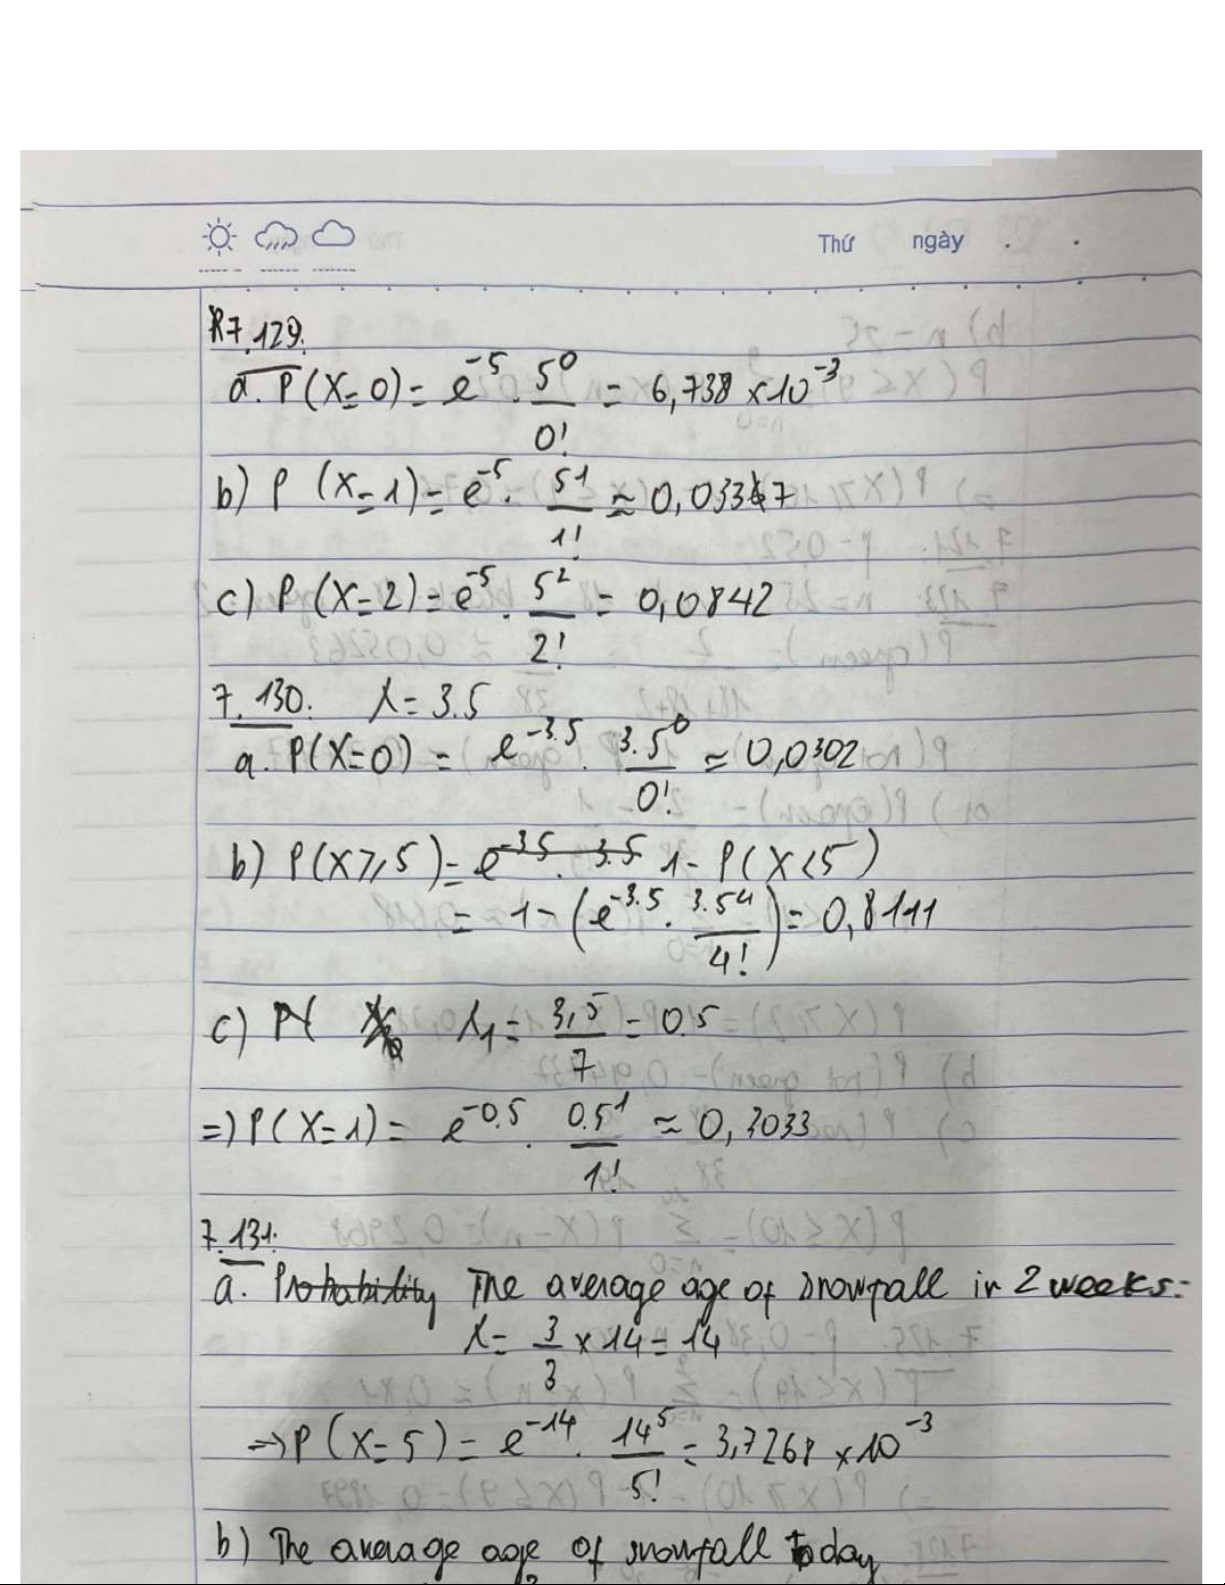 Thứ ngày . .
R7.129.
a. P(X=0) = e^-5 . 5^0/0! = 6,738 x 10^-3
b) P (X=1) = e^-5 . 5^1/1! ≈ 0,0337
c) P (X=2) = e^-5 . 5^2/2! = 0,0842
7.130. λ = 3.5
a. P(X=0) = e^-3.5 . 3.5^0/0! ≈ 0,0302
b) P(X≥5) = e^-3.5 . 3.5 1 - P(X<5)
= 1 - (e^-3.5 . 3.5^4/4!) = 0,8111
c) P( λ1 = 3,5/7 = 0.5
=> P(X=1) = e^-0.5 . 0.5^1/1! ≈ 0,3033
7.131.
a. Probability The average age of snowfall in 2 weeks:
λ = 3/3 x 14 = 14
=> P(X=5) = e^-14 . 14^5/5! = 3,7268 x 10^-3
b) The average age of snowfall today